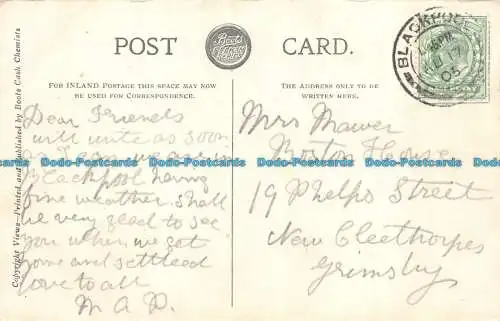 POST CARD.
Boots
FOR INLAND POSTAGE THIS SPACE MAY NOW
BE USED FOR CORRESPONDENCE.
THE ADDRESS ONLY TO BE
WRITTEN HERE.
Copyright Views—Printed and Published by Boots Cash Chemists
BLACKPOOL
JU 17
05
Dear Friends
will write as soon
as I can we are in
Blackpool having
fine weather shall
be very glad to see
you when we get
home and settleed
love to all
M A P.
Mrs Mawer
Morton House
19 Phelps Street
New Cleethorpes
Grimsby
Dodo-Postcards Dodo-Postcards Dodo-Postcards Dodo-Postcards Dodo-Postcards